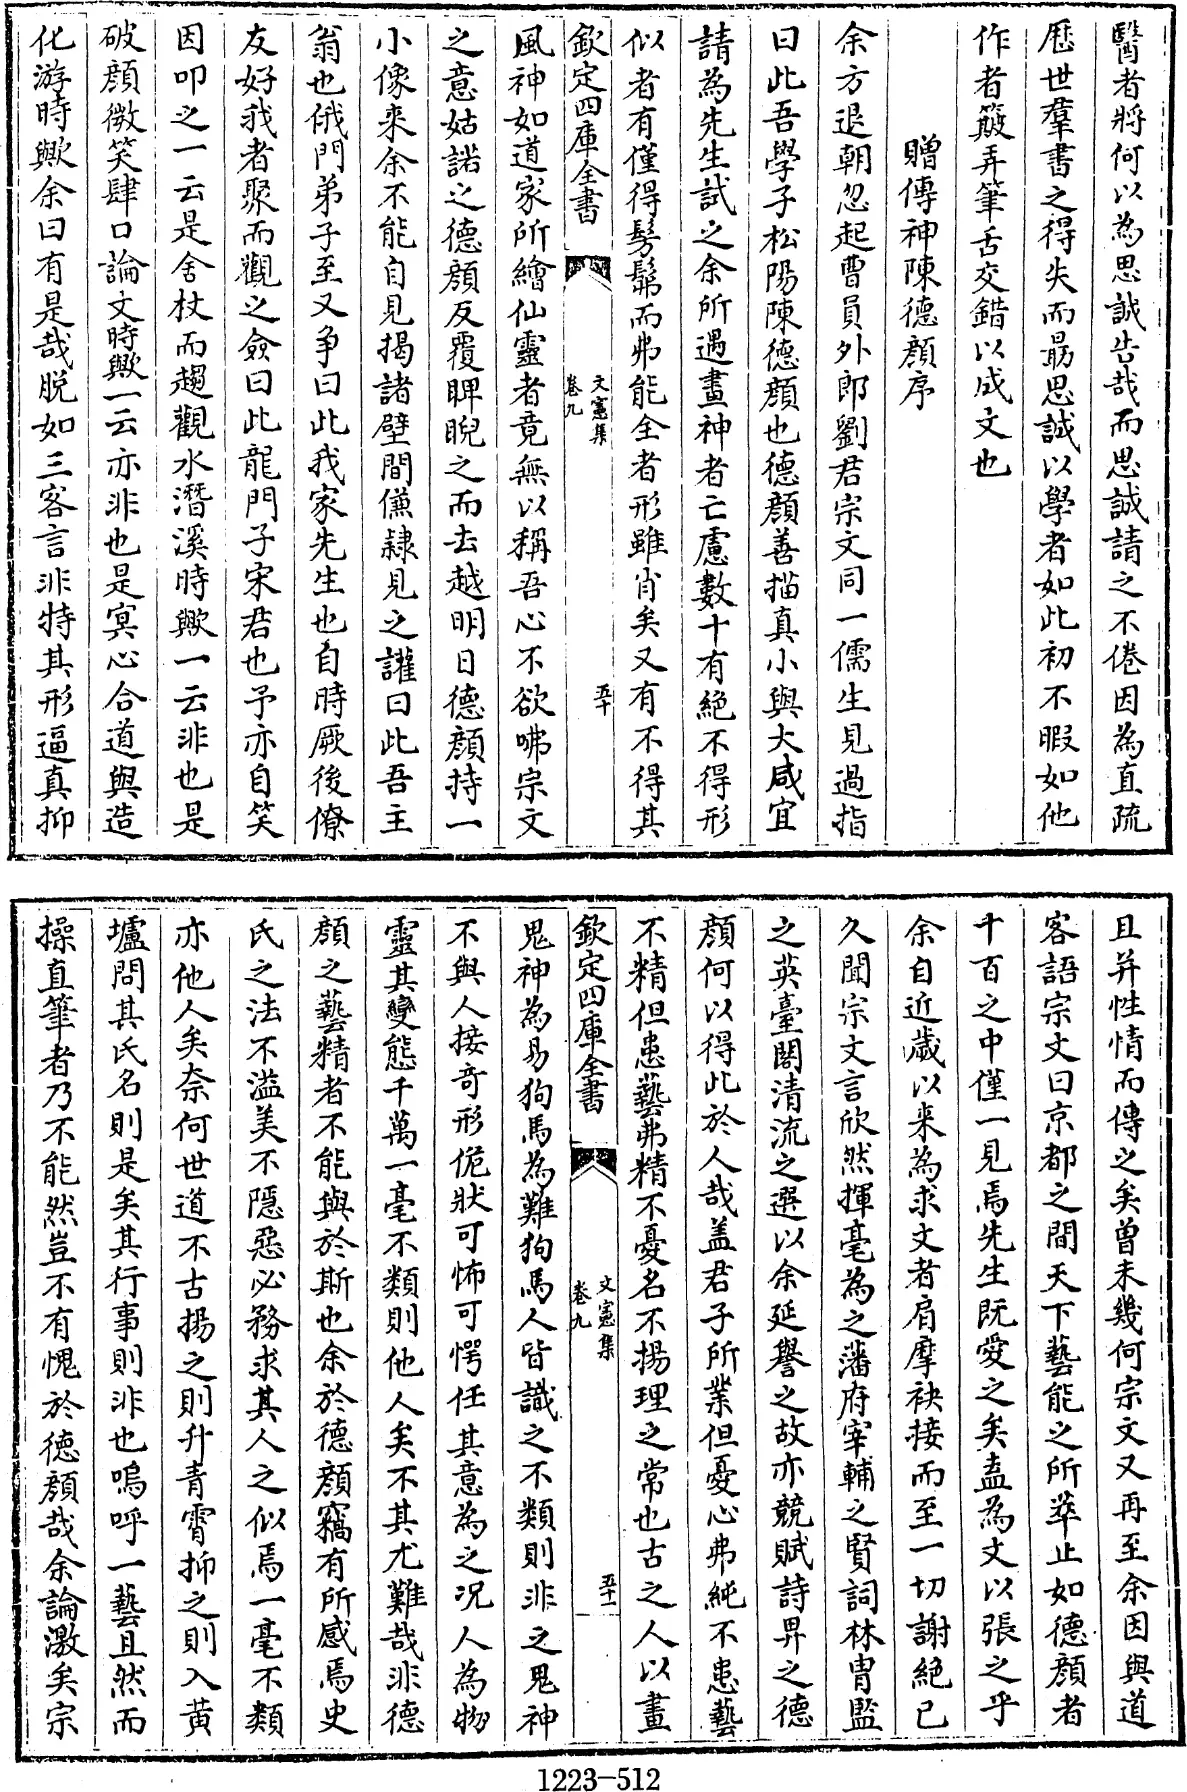 醫者將何以為思誠告哉而思誠請之不倦因為直疏
歷世羣書之得失而勗思誠以學者如此初不暇如他
作者簸弄筆舌交錯以成文也
贈傳神陳德顔序
余方退朝忽起曹員外郎劉君宗文同一儒生見過指
曰此吾學子松陽陳德顔也德顔善描真小與大咸宜
請為先生試之余所遇畫神者亡慮數十有絶不得形
似者有僅得髣髴而弗能全者形雖肖矣又有不得其
欽定四庫全書
文憲集
卷九
五十
風神如道家所繪仙靈者竟無以稱吾心不欲咈宗文
之意姑諾之德顔反覆睥睨之而去越明日德顔持一
小像來余不能自見揭諸壁間傔隸見之讙曰此吾主
翁也俄門弟子至又爭曰此我家先生也自時厥後僚
友好我者聚而觀之僉曰此龍門子宋君也予亦自笑
因叩之一云是舍杖而趨觀水潛溪時歟一云非也是
破顔微笑肆口論文時歟一云亦非也是冥心合道與造
化游時歟余曰有是哉脱如三客言非特其形逼真抑
且并性情而傳之矣曽未幾何宗文又再至余因與道
客語宗文曰京都之間天下藝能之所萃止如德顔者
千百之中僅一見焉先生既愛之矣盍為文以張之乎
余自近歲以来為求文者肩摩袂接而至一切謝絶已
久聞宗文言欣然揮毫為之藩府宰輔之賢詞林胄監
之英臺閣清流之選以余延譽之故亦競賦詩畀之德
顔何以得此於人哉盖君子所業但憂心弗純不患藝
不精但患藝弗精不憂名不揚理之常也古之人以畫
欽定四庫全書
文憲集
卷九
五十一
鬼神為易狗馬為難狗馬人皆識之不類則非之鬼神
不與人接奇形佹狀可怖可愕任其意為之况人為物
靈其變態千萬一毫不類則他人矣不其尤難哉非德
顔之藝精者不能與於斯也余於德顔竊有所感焉史
氏之法不溢美不隱惡必務求其人之似焉一毫不類
亦他人矣奈何世道不古揚之則升青霄抑之則入黄
壚問其氏名則是矣其行事則非也嗚呼一藝且然而
操直筆者乃不能然豈不有愧於德顔哉余論激矣宗
1223-512